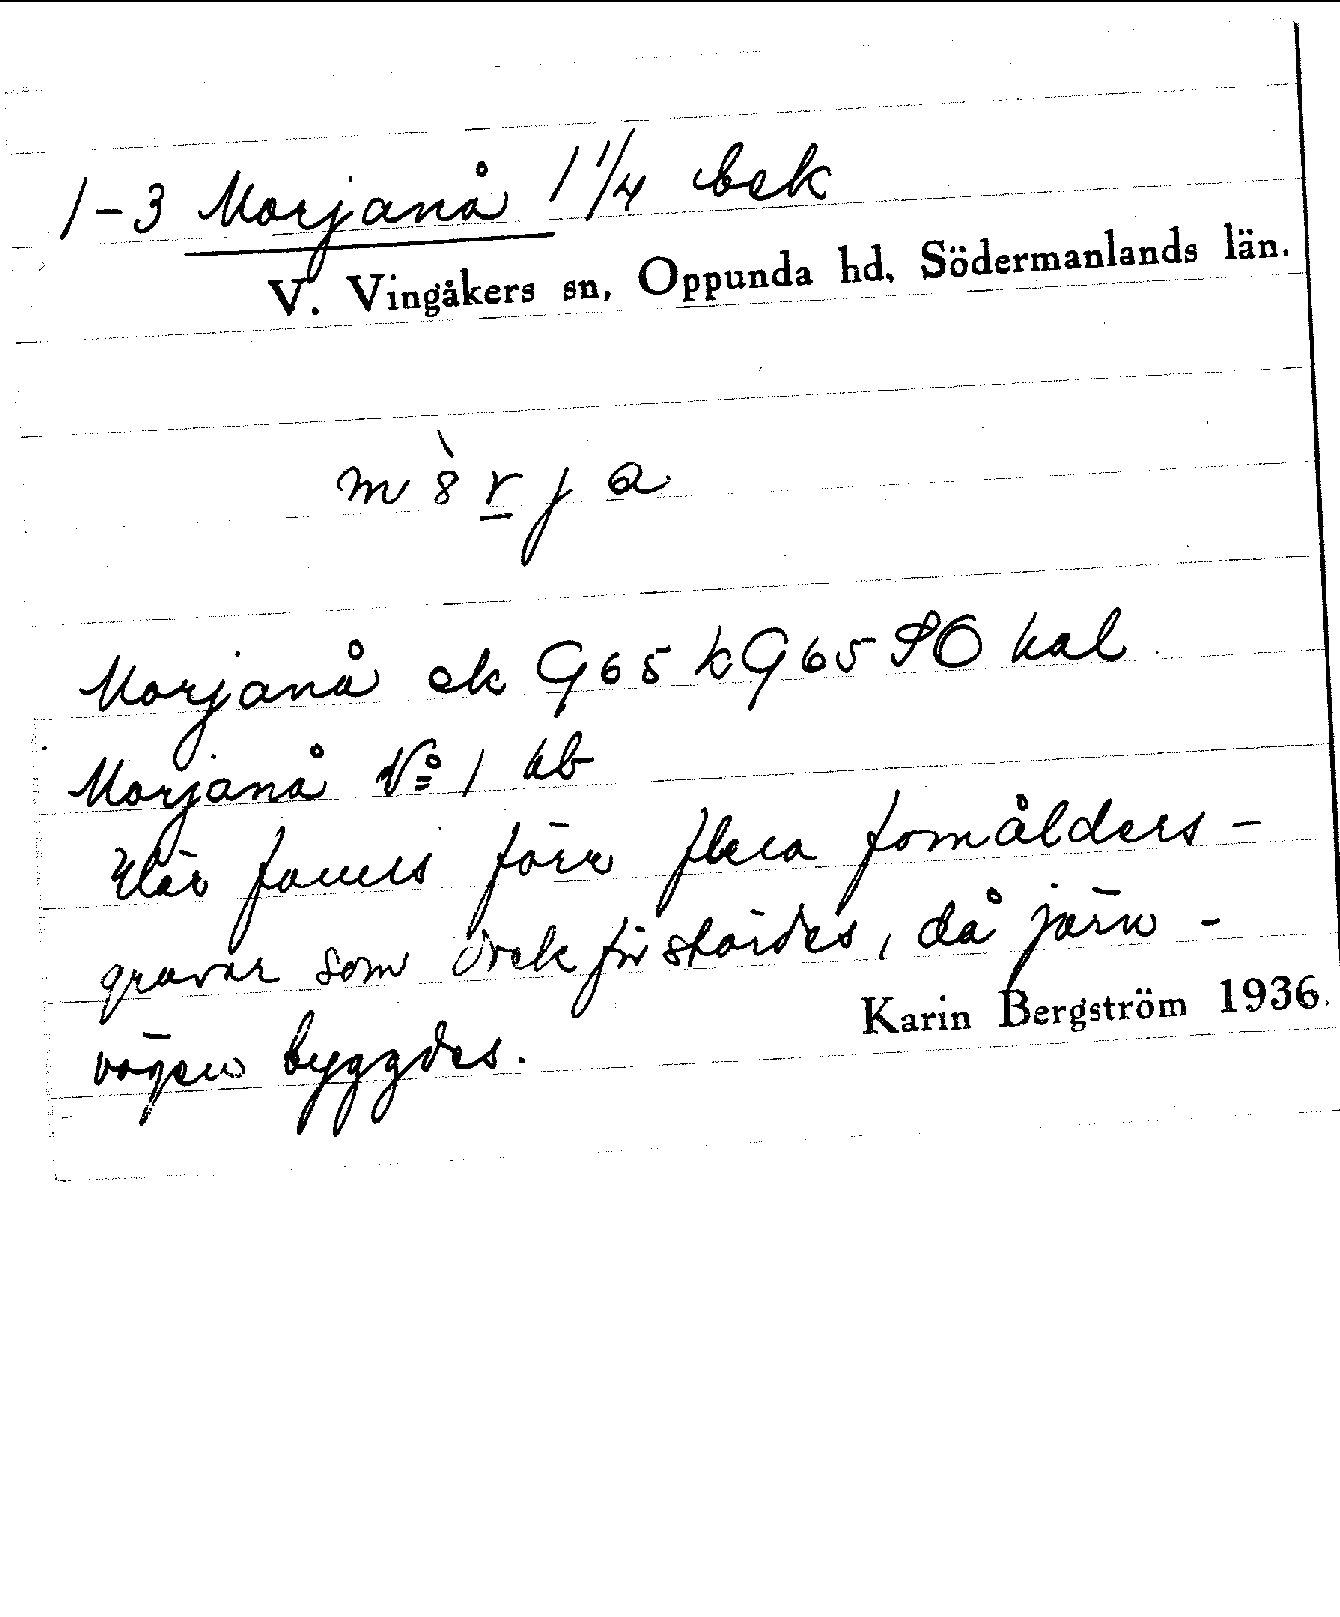 1-3 Morjanå 1 1/4 bek
V. Vingåkers sn, Oppunda hd, Södermanlands län.
m 8̀ r j a
Morjanå ek G65 k G65 SO hal
Morjanå No 1 hb
Här fanns förr flera fornålders-
gravar som dock förstördes, då järn-
vägen byggdes.
Karin Bergström 1936.